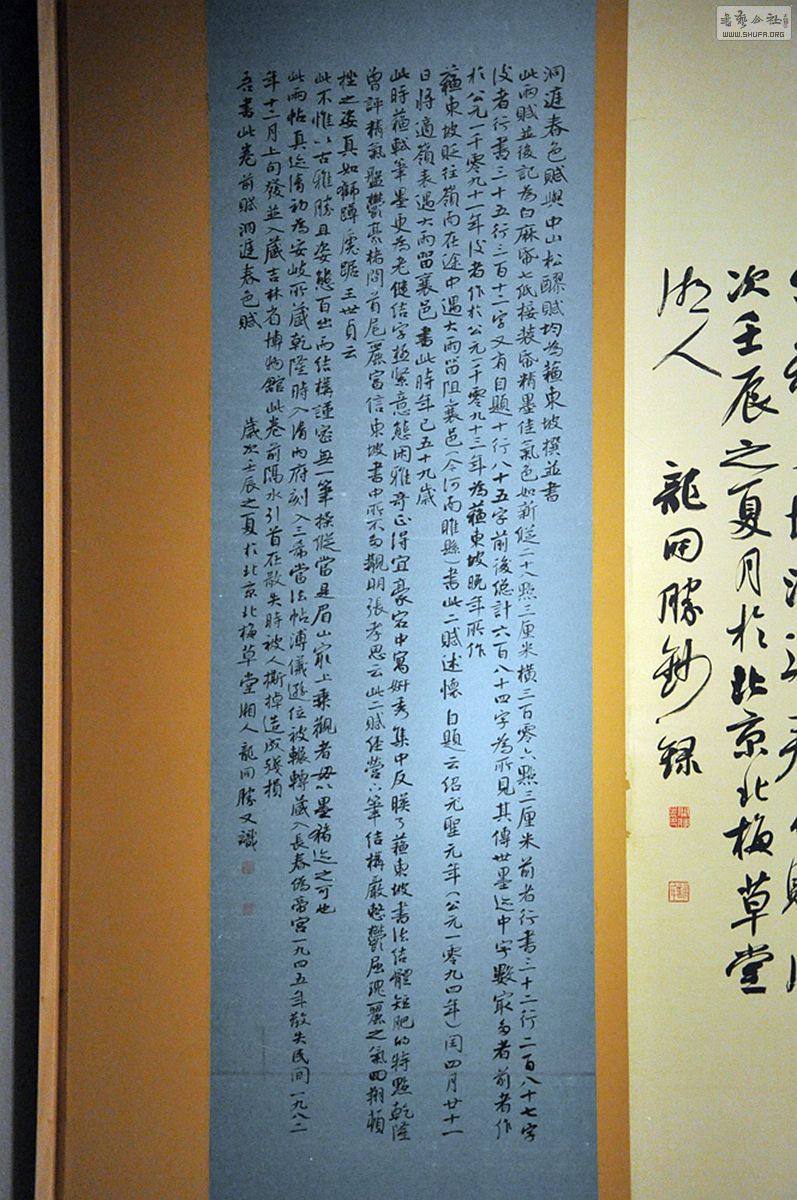 次壬辰之夏月於北京北梅草堂
湘人 龍開勝鈔錄
洞庭春色賦與中山松醪賦均為蘇東坡撰並書
此兩賦並後記為白麻紙七紙接裝紙精墨佳氣色如新縱二十八點三厘米橫三百零六點三厘米前者行書三十二行二百八十七字
後者行書三十五行三百十二字又有自題十行八十五字前後總計六百八十四字為所見其傳世墨迹中字數最多者前者作
於公元一千零九十一年後者作於公元一千零九十三年為蘇東坡晚年所作
蘇東坡貶往嶺南在途中遇大雨留阻襄邑(今河南睢縣)書此二賦述懷自題云紹聖元年(公元一零九四年)閏四月廿十一
日將適嶺表遇大雨留襄邑書此時年已五十九歲
此時蘇軾筆墨更為老健結字極緊意態閑雅奇正得宜豪宕中寓妍秀集中反映了蘇東坡書法結體短肥的特點乾隆
曾評精氣盤鬱豪楮間首尾麗富信東坡書中所不多覯明張孝思云此二賦經營下筆結構嚴整鬱屈瑰麗之氣回翔頓
挫之姿真如獅蹲虎踞王世貞云
此不惟以古雅勝且姿態百出而結構謹密無一筆操縱當是眉山最上乘觀者毋以墨豬迹之可也
此兩帖真迹清初為安岐所藏乾隆時入清內府刻入三希堂法帖溥儀遜位被輾轉藏入長春偽帝宮一九四五年散失民間一九八二
年十二月上旬發並入藏吉林省博物館此卷前隔水引首在散失時被人撕掉造成殘損
吾書此卷前賦洞庭春色賦 歲次壬辰之夏於北京北梅草堂湘人龍開勝又識
書藝公社
WWW.SHUFA.ORG